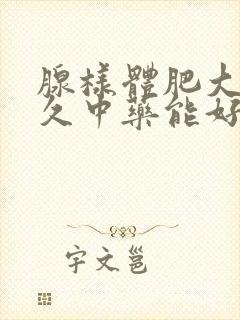 腺樣體肥大
久中藥能好
宇文邕